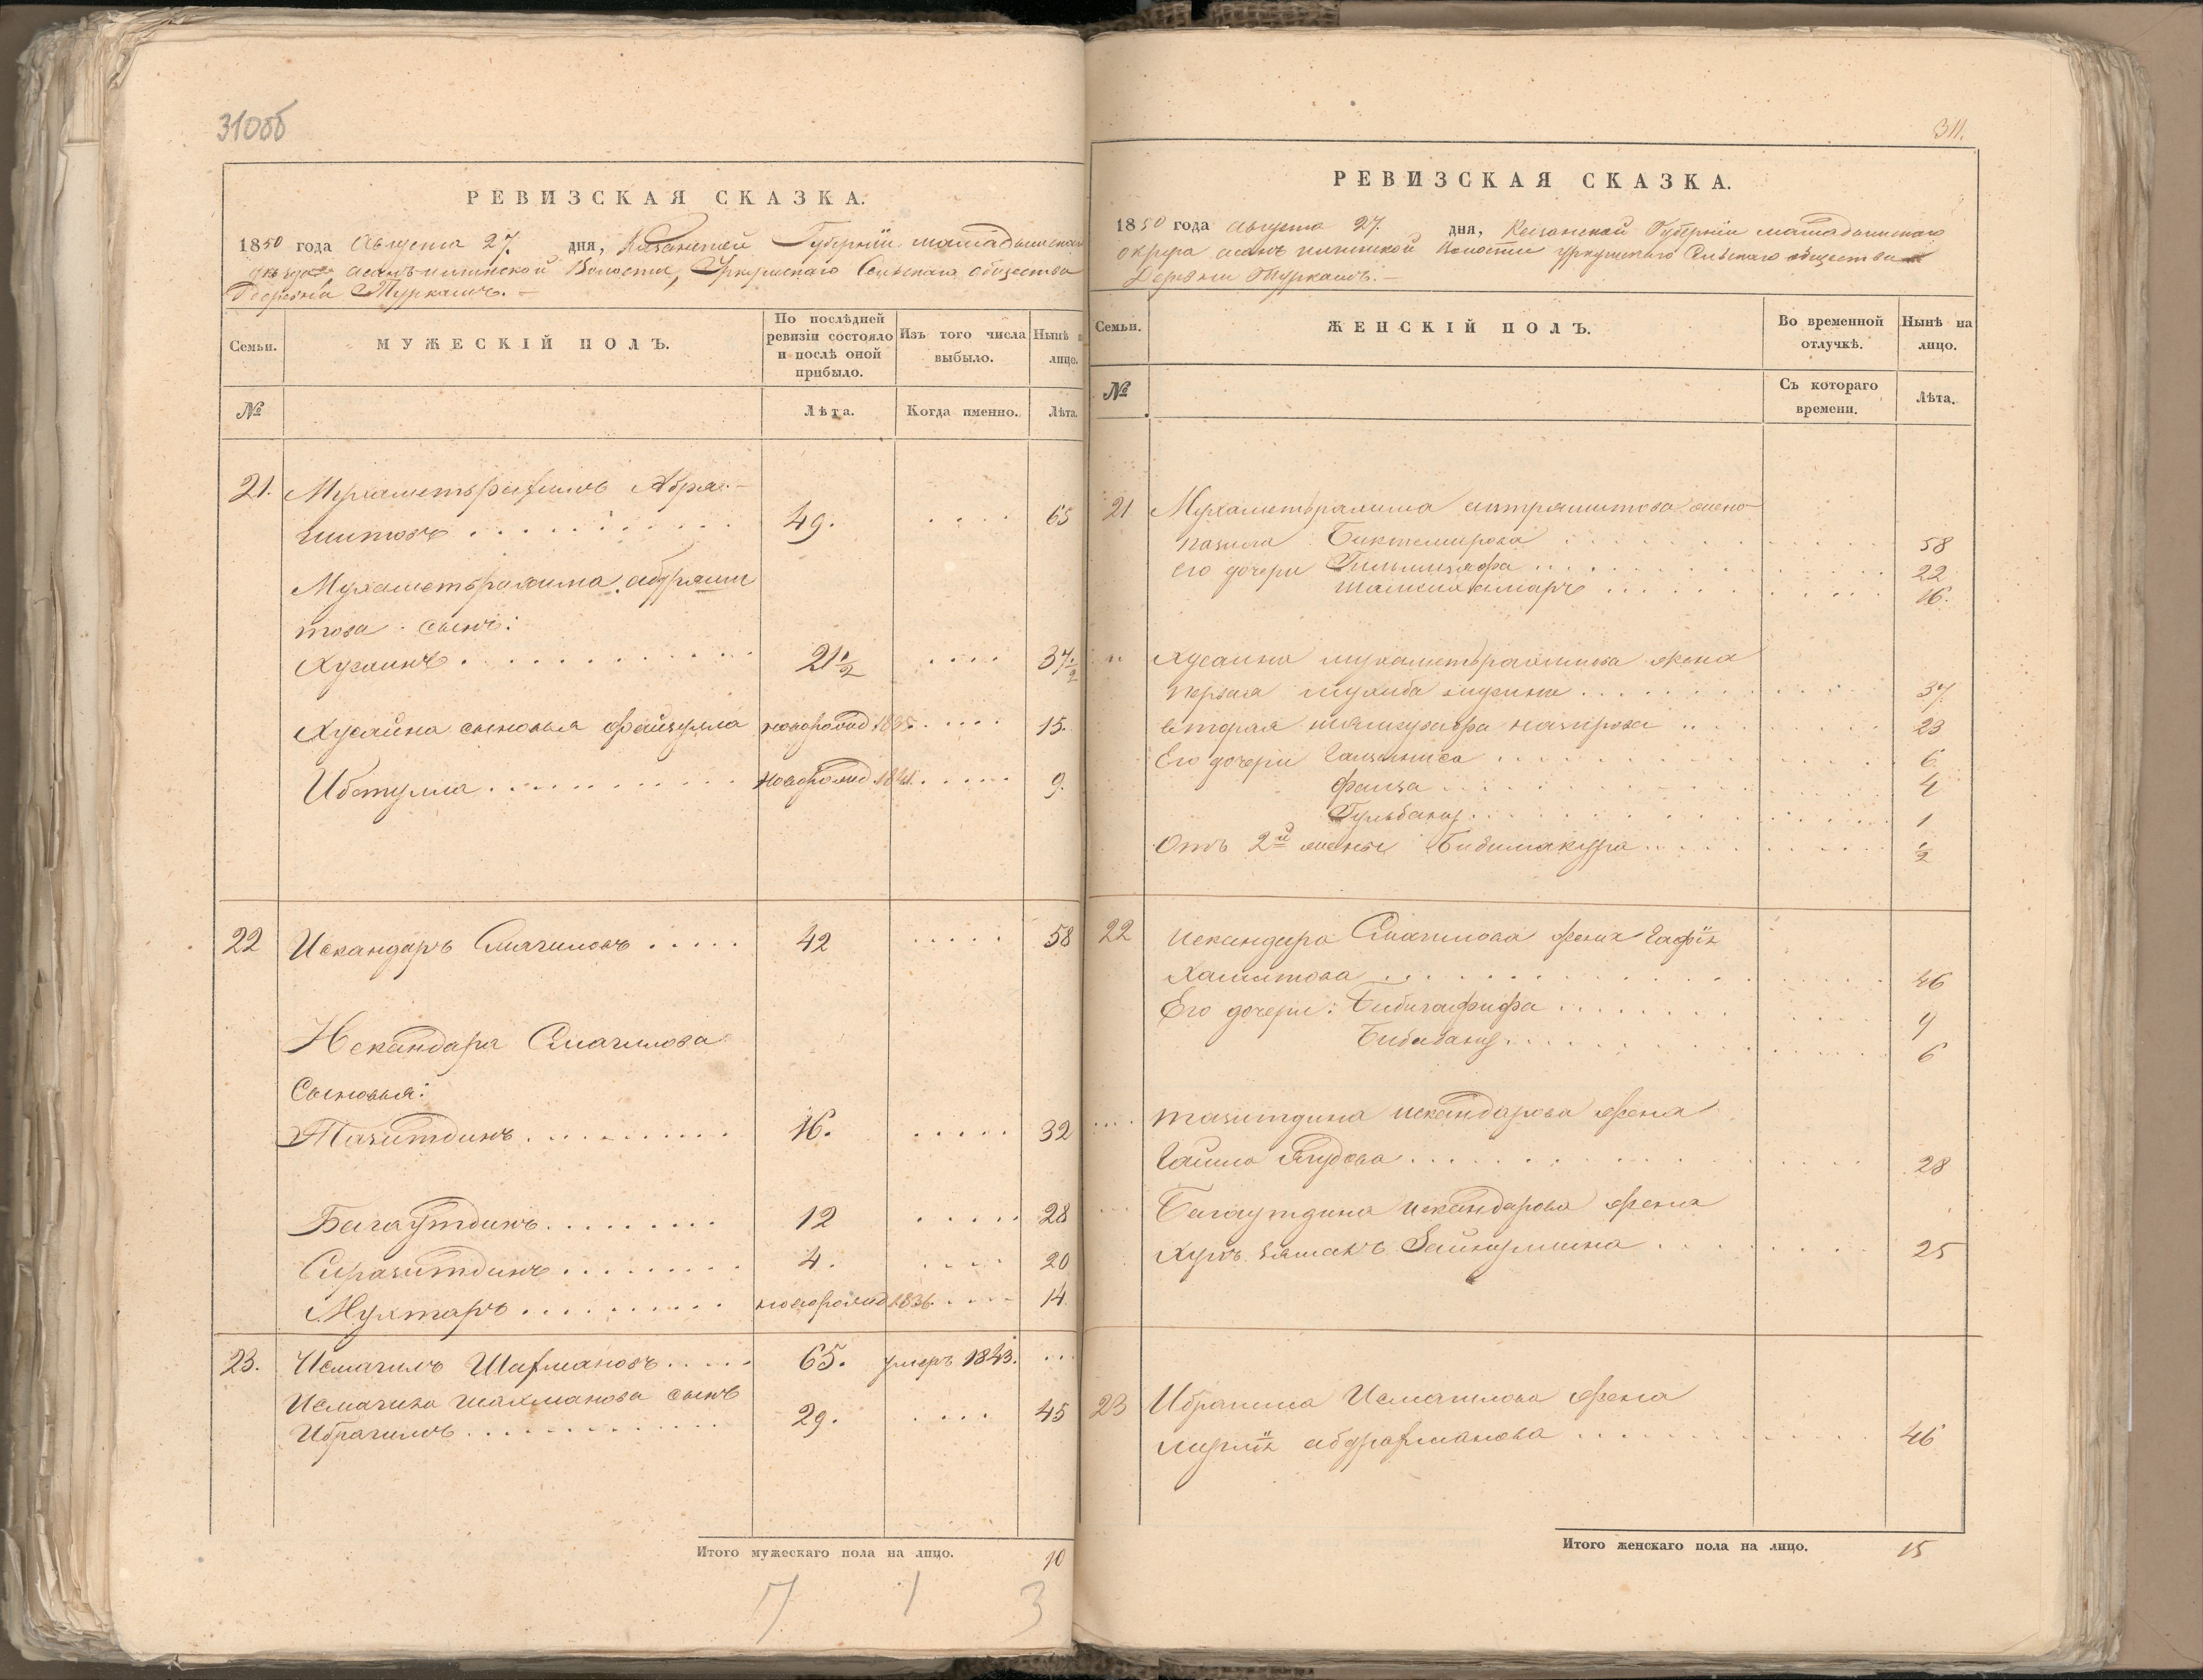 310об
РЕВИЗСКАЯ СКАЗКА.
1850 года Августа 27. дня, Казанской Губерніи мамадышскаго
уѣзда асанъ-илгинской Волости, Уркушскаго Сельскаго общества
Деревни Туркашъ.
Семьи.
МУЖЕСКІЙ ПОЛЪ.
По послѣдней ревизіи состояло и послѣ оной прибыло.
Изъ того числа выбыло.
Нынѣ лицо.
№
Лѣта.
Когда именно.
Лѣта.
21. Мухаметърахимъ Абдра-
шитовъ 49. 65
Мухаметърахима абдраши
това сынъ:
Хусаинъ 21½ 37½
Хусайна сыновья Файзулла новорожд 1835 15.
Ибетулла новорожд 1841 9.
22 Искандаръ Смагиловъ 42 58
Искандара Смагилова
Сыновья:
Тазитдинъ 16. 32
Багаутдинъ 12 28
Сиразитдинъ 4. 20
Мухтаръ новорожд 1836 14
23. Исмагилъ Шахмановъ 65. умеръ 1843.
Исмагила шахманова сынъ
Ибрагимъ 29. 45
Итого мужескаго пола на лицо. 10
7 1 3
311.
РЕВИЗСКАЯ СКАЗКА.
1850 года августа 27. дня, Казанской Губерніи мамадышскаго
округа асанъ илгинской Волости уркушскаго Сельскаго общества
Деревни Туркашъ.
Семьи.
ЖЕНСКІЙ ПОЛЪ.
Во временной отлучкѣ.
Нынѣ на лицо.
№
Съ котораго времени.
Лѣта.
21 Мухаметърахима жена
Биктемирова 58
его дочери 22
16.
Хусаина мухаметърахимова жена
первая 37
вторая назирова 23
Его дочери 6
Фаиза 4
Гульбану 1
Отъ 2й жены ½
22 Искандара Смагилова жена Гафія
Хамитова 46
Его дочери: Бибигафифа 9
Бибибану 6
тазитдина искандарова жена
Ягудова 28
Багаутдина искандарова жена
Зайнуллина 25
23 Ибрагима Исмагилова жена
абдрахманова 46
Итого женскаго пола на лицо. 15